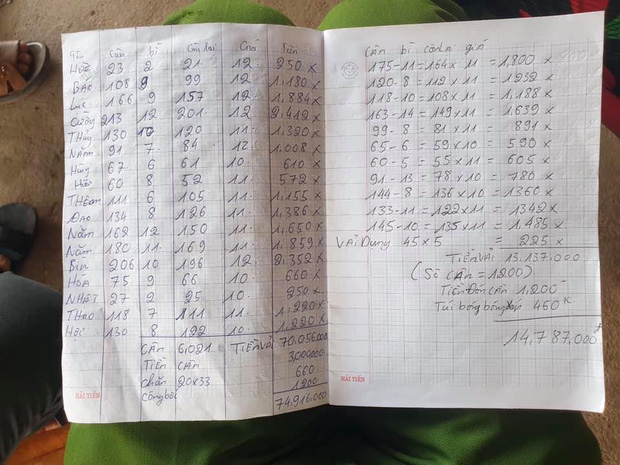 Tên Cân bì Còn lại Giá Tiền
Huề 23 2 21 12 250 x
Bảo 108 9 99 12 1,180 x
Lực 166 9 157 12 1,884 x
Cường 213 12 201 12 2,412 x
Thủy 130 10 120 11 1,320 x
Năm 91 7 84 12 1,008 x
Hùng 67 6 61 10 610 x
60 8 52 11 572 x
Thoan 111 6 105 11 1,155 x
Đào 134 8 126 11 1,386 x
Năm 162 12 150 11 1,650 x
Năm 180 11 169 11 1,859 x
206 10 196 12 2,352 x
Hòa 75 9 66 10 660 x
Nhật 27 2 25 10 250 x
Thao 118 7 111 11 1,220 x
130 8 122 10 1,220 x
Cân 6,021 Tiền Vải 70,056,000
Tiền Cân 3,000,000
Chắn 20x33 660
Công bốc 1200
74,916,000
HẢI TIẾN
Cân bì còn lại giá
175 - 11 = 164 x 11 = 1,800 x
120 - 8 = 112 x 11 = 1,232 x
118 - 10 = 108 x 11 = 1,188 x
163 - 14 = 149 x 11 = 1,639 x
99 - 8 = 81 x 11 = 891 x
65 - 6 = 59 x 10 = 590 x
60 - 5 = 55 x 11 = 605 x
91 - 13 = 78 x 10 = 780 x
144 - 8 = 136 x 10 = 1360 x
133 - 11 = 122 x 11 = 1342 x
145 - 10 = 135 x 11 = 1,485 x
Vải Dung 45 x 5 = 225 x
Tiền Vải 13,137,000
(Số Cân = 1200)
Tiền Đón Cân 1,200
Túi bóng 450 K
14,787,000đ
HẢI TIẾN